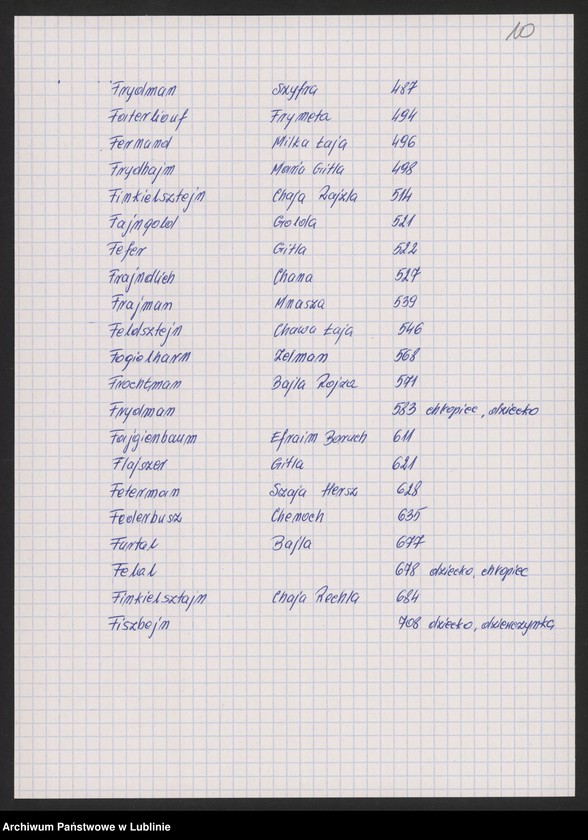 10
Frydman Szyfra 487
Foterkouf Frymeta 494
Fermand Milka Łaja 496
Frydhajm Maria Gitla 498
Finkielsztejn Chaja Rajzla 514
Fajngold Golda 521
Fefer Gitla 522
Frajndlich Chana 527
Frajman Mnasza 539
Feldsztejn Chawa Łaja 546
Zelman 568
Frochtman Bajla Rojza 571
Frydman 583 chłopiec, dziecko
Fajgienbaum Efraim Boruch 611
Flajszer Gitla 621
Feterman Szaja Hersz 628
Federbusz Chenoch 635
Furtal Bajla 677
Felal 678 dziecko, chłopiec
Finkielsztajn Chaja Rechla 684
Fiszbejn 708 dziecko, dziewczynka
Archiwum Państwowe w Lublinie